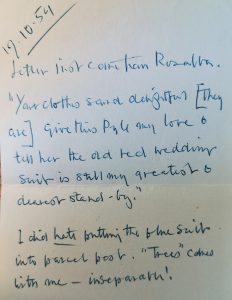 19.10.54
Letter just come from Rosalba.
"Your clothes sound delightful [they
are] Give this Pyle my love &
tell her the old red wedding
suit is still my greatest &
dearest stand-by."
I did hate putting the blue suit
into parcel post. "Trees" comes
with me — inseparable!